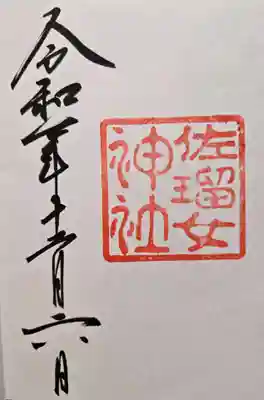 佐瑠女
神社
令和元年十二月六日